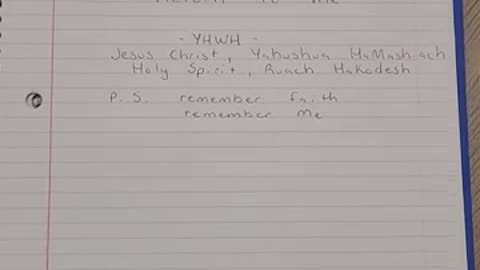 - YHWH -
Jesus Christ, Yahushua HaMashiach
Holy Spirit, Ruach HaKodesh
P.S. remember faith
remember Me